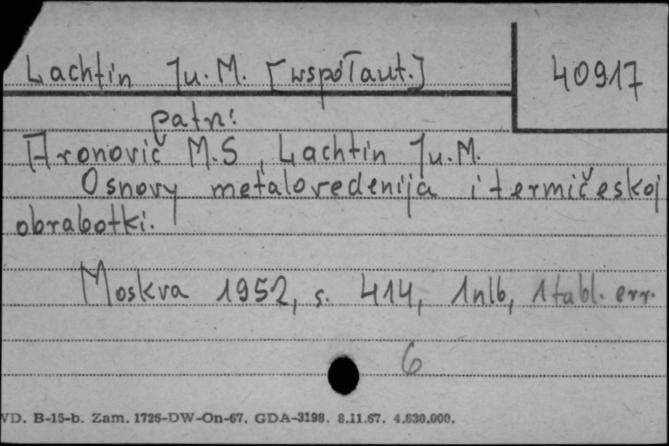 Lachtin Ju. M. [współaut.]
40917
patrz:
Aronovič M.S, Lachtin Ju. M.
Osnovy metalovedenija i termičeskoj
obrabotki.
Moskva 1952, s. 414, 1nlb, 1tabl. err.
6
VD. B-15-b. Zam. 1726-DW-On-67. GDA-3198. 8.11.67. 4.830.000.